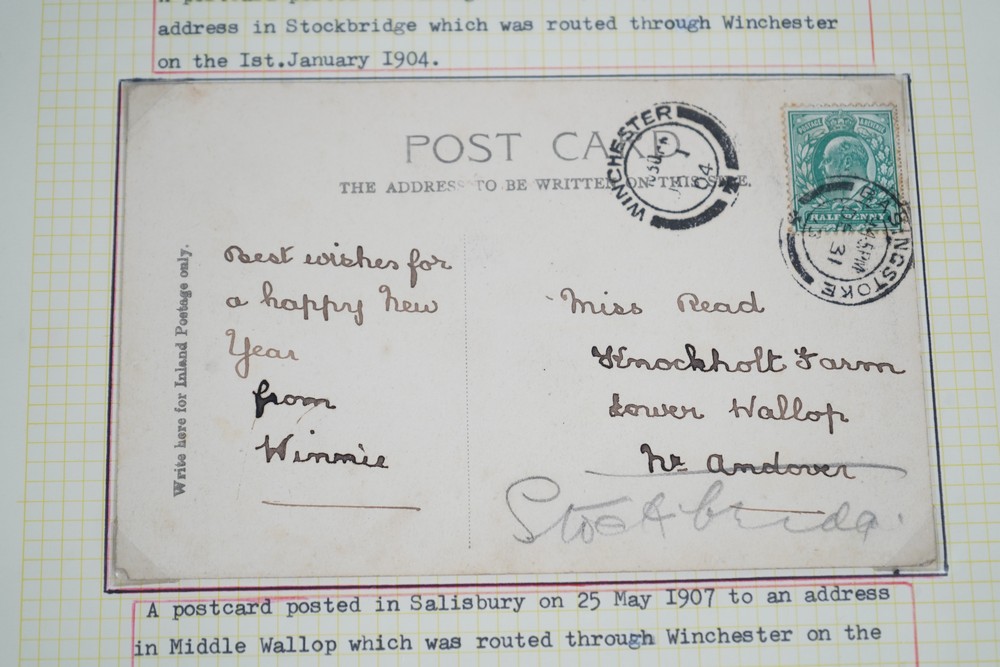 address in Stockbridge which was routed through Winchester
on the Ist.January I904.
POST CARD
THE ADDRESS TO BE WRITTEN ON THIS SIDE.
WINCHESTER
04
POSTAGE & REVENUE
HALF PENNY
BASINGSTOKE
31
Write here for Inland Postage only.
Best wishes for
a happy New
Year
from
Winnie
Miss Read
Knockholt Farm
Lower Wallop
Nr Andover
Stockbridge.
A postcard posted in Salisbury on 25 May I907 to an address
in Middle Wallop which was routed through Winchester on the